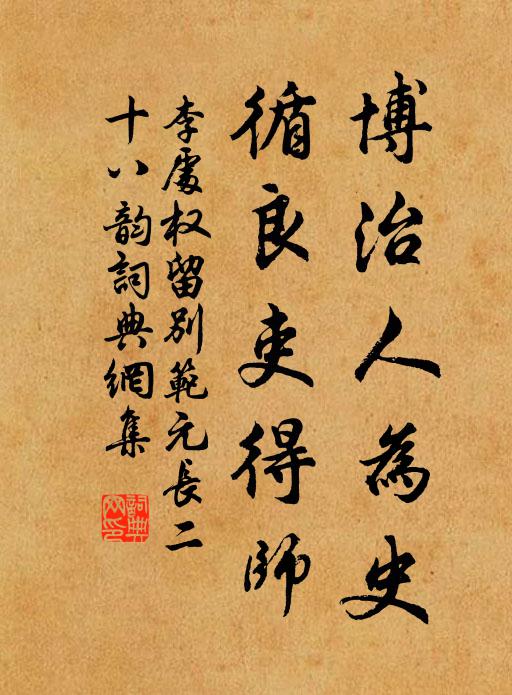 博治人為史
循良吏得師
李處权留別範元長二
十八韵詞典網集
詞典网印